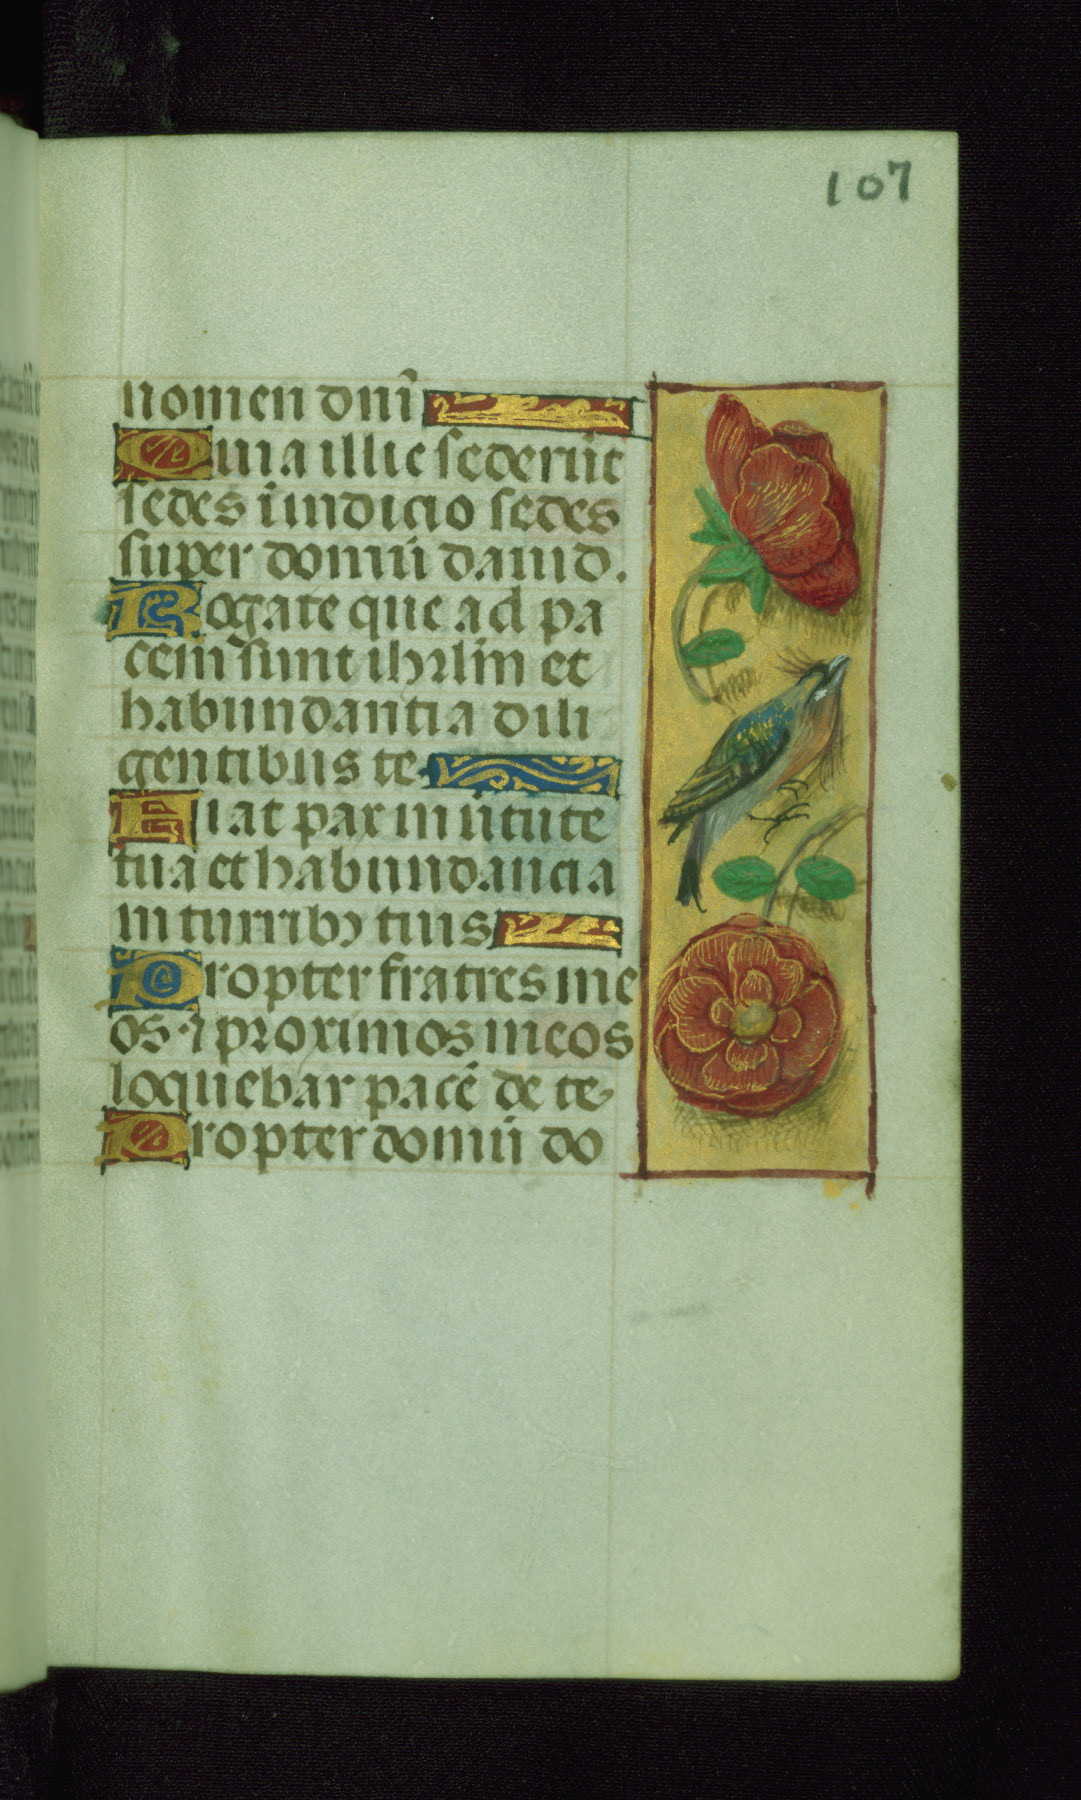 107
nomen dnī
Quia illic sederūt
sedes ī iudicio sedes
super domū dauid.
Rogate que ad pa
cem sunt ihrlm et
habundantia dili
gentibus te
Fiat pax in ūtute
tua et habundancia
in turribꝫ tuis
Propter fratres me
os ⁊ proximos meos
loquebar pacē de te
Propter domū do